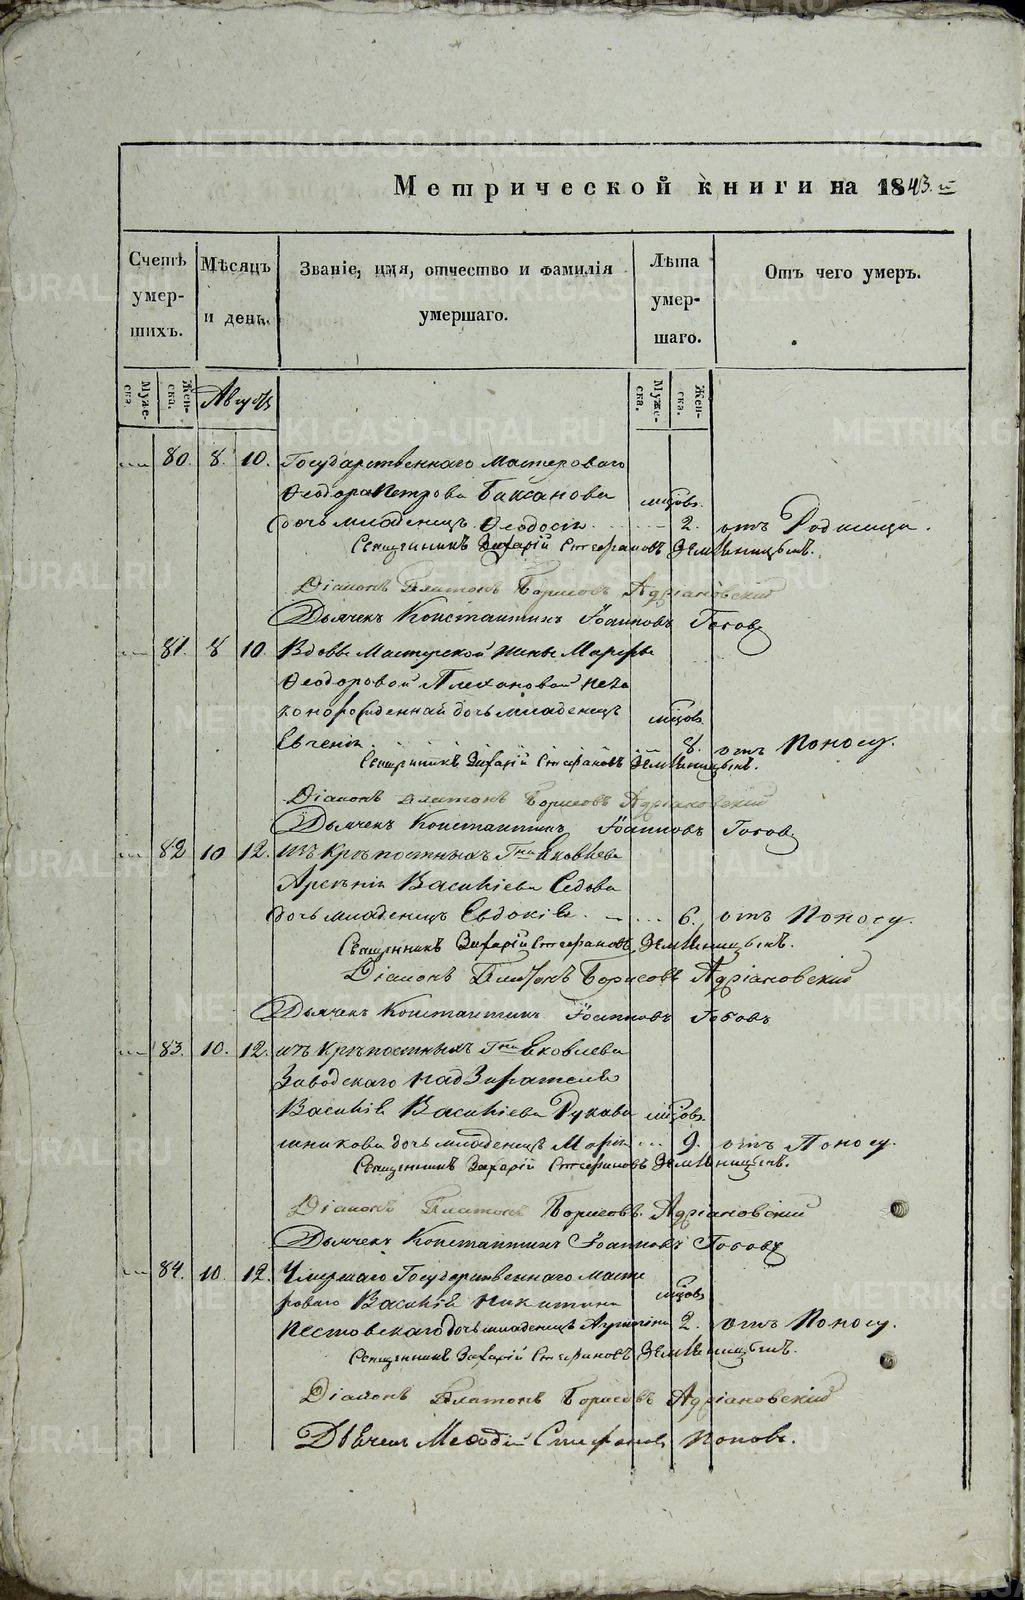 Метрической книги на 1843.й
Счетъ умер-шихъ.
Мѣсяцъ и день.
Званіе, имя, отчество и фамилія умершаго.
Лѣта умер-шаго.
Отъ чего умеръ.
Муже-ска.
Жен-ска.
Августъ
Муже-ска.
Жен-ска.
80. 8. 10. Государственнаго Мастероваго
Ѳеодора Петрова Баксанова мѣсцовъ
дочь младенецъ Ѳеодосія 2. отъ Родимца.
Священникъ Захарій Стефановъ Земляницынъ.
Діаконъ Платонъ Борисовъ Адріановскій
Дьячекъ Константинъ Іоанновъ
81. 8 10. Вдовы Мастерской жены Марѳы
Ѳеодоровой Плехановой неза
конорожденнай дочь младенецъ мѣсцов
Евгенія 8. отъ Поносу.
Священникъ Захарій Стефановъ Земляницынъ.
Діаконъ Платонъ Борисовъ Адріановскій
Дьячекъ Константинъ Іоанновъ
82 10 12. изъ Крѣпостныхъ Гна Яковлева
Арсенія Василіева Седова
дочь младенецъ Евдокія 6. отъ Поносу.
Священникъ Захарій Стефановъ Земляницынъ.
Діаконъ Платонъ Борисовъ Адріановскій
Дьячекъ Константинъ Іоанновъ
83. 10. 12. изъ Крѣпостныхъ Гна Яковлева
Заводскаго Надзирателя
Василія Василіева Рукави мѣсцов.
шникова дочь младенецъ Марія 9. отъ Поносу.
Священникъ Захарій Стефановъ Земляницынъ.
Діаконъ Платонъ Борисовъ Адріановскій
Дьячекъ Константинъ Іоанновъ
84. 10. 12. Умершаго Государственнаго Масте
роваго Василія Никитина мѣсцов
Пестовскаго дочь младенецъ 2. отъ Поносу.
Священникъ Захарій Стефановъ Земляницынъ.
Діаконъ Платонъ Борисовъ Адріановскій
Дьячекъ Меѳодій Стефановъ Поповъ.
METRIKI.GASO-URAL.RU